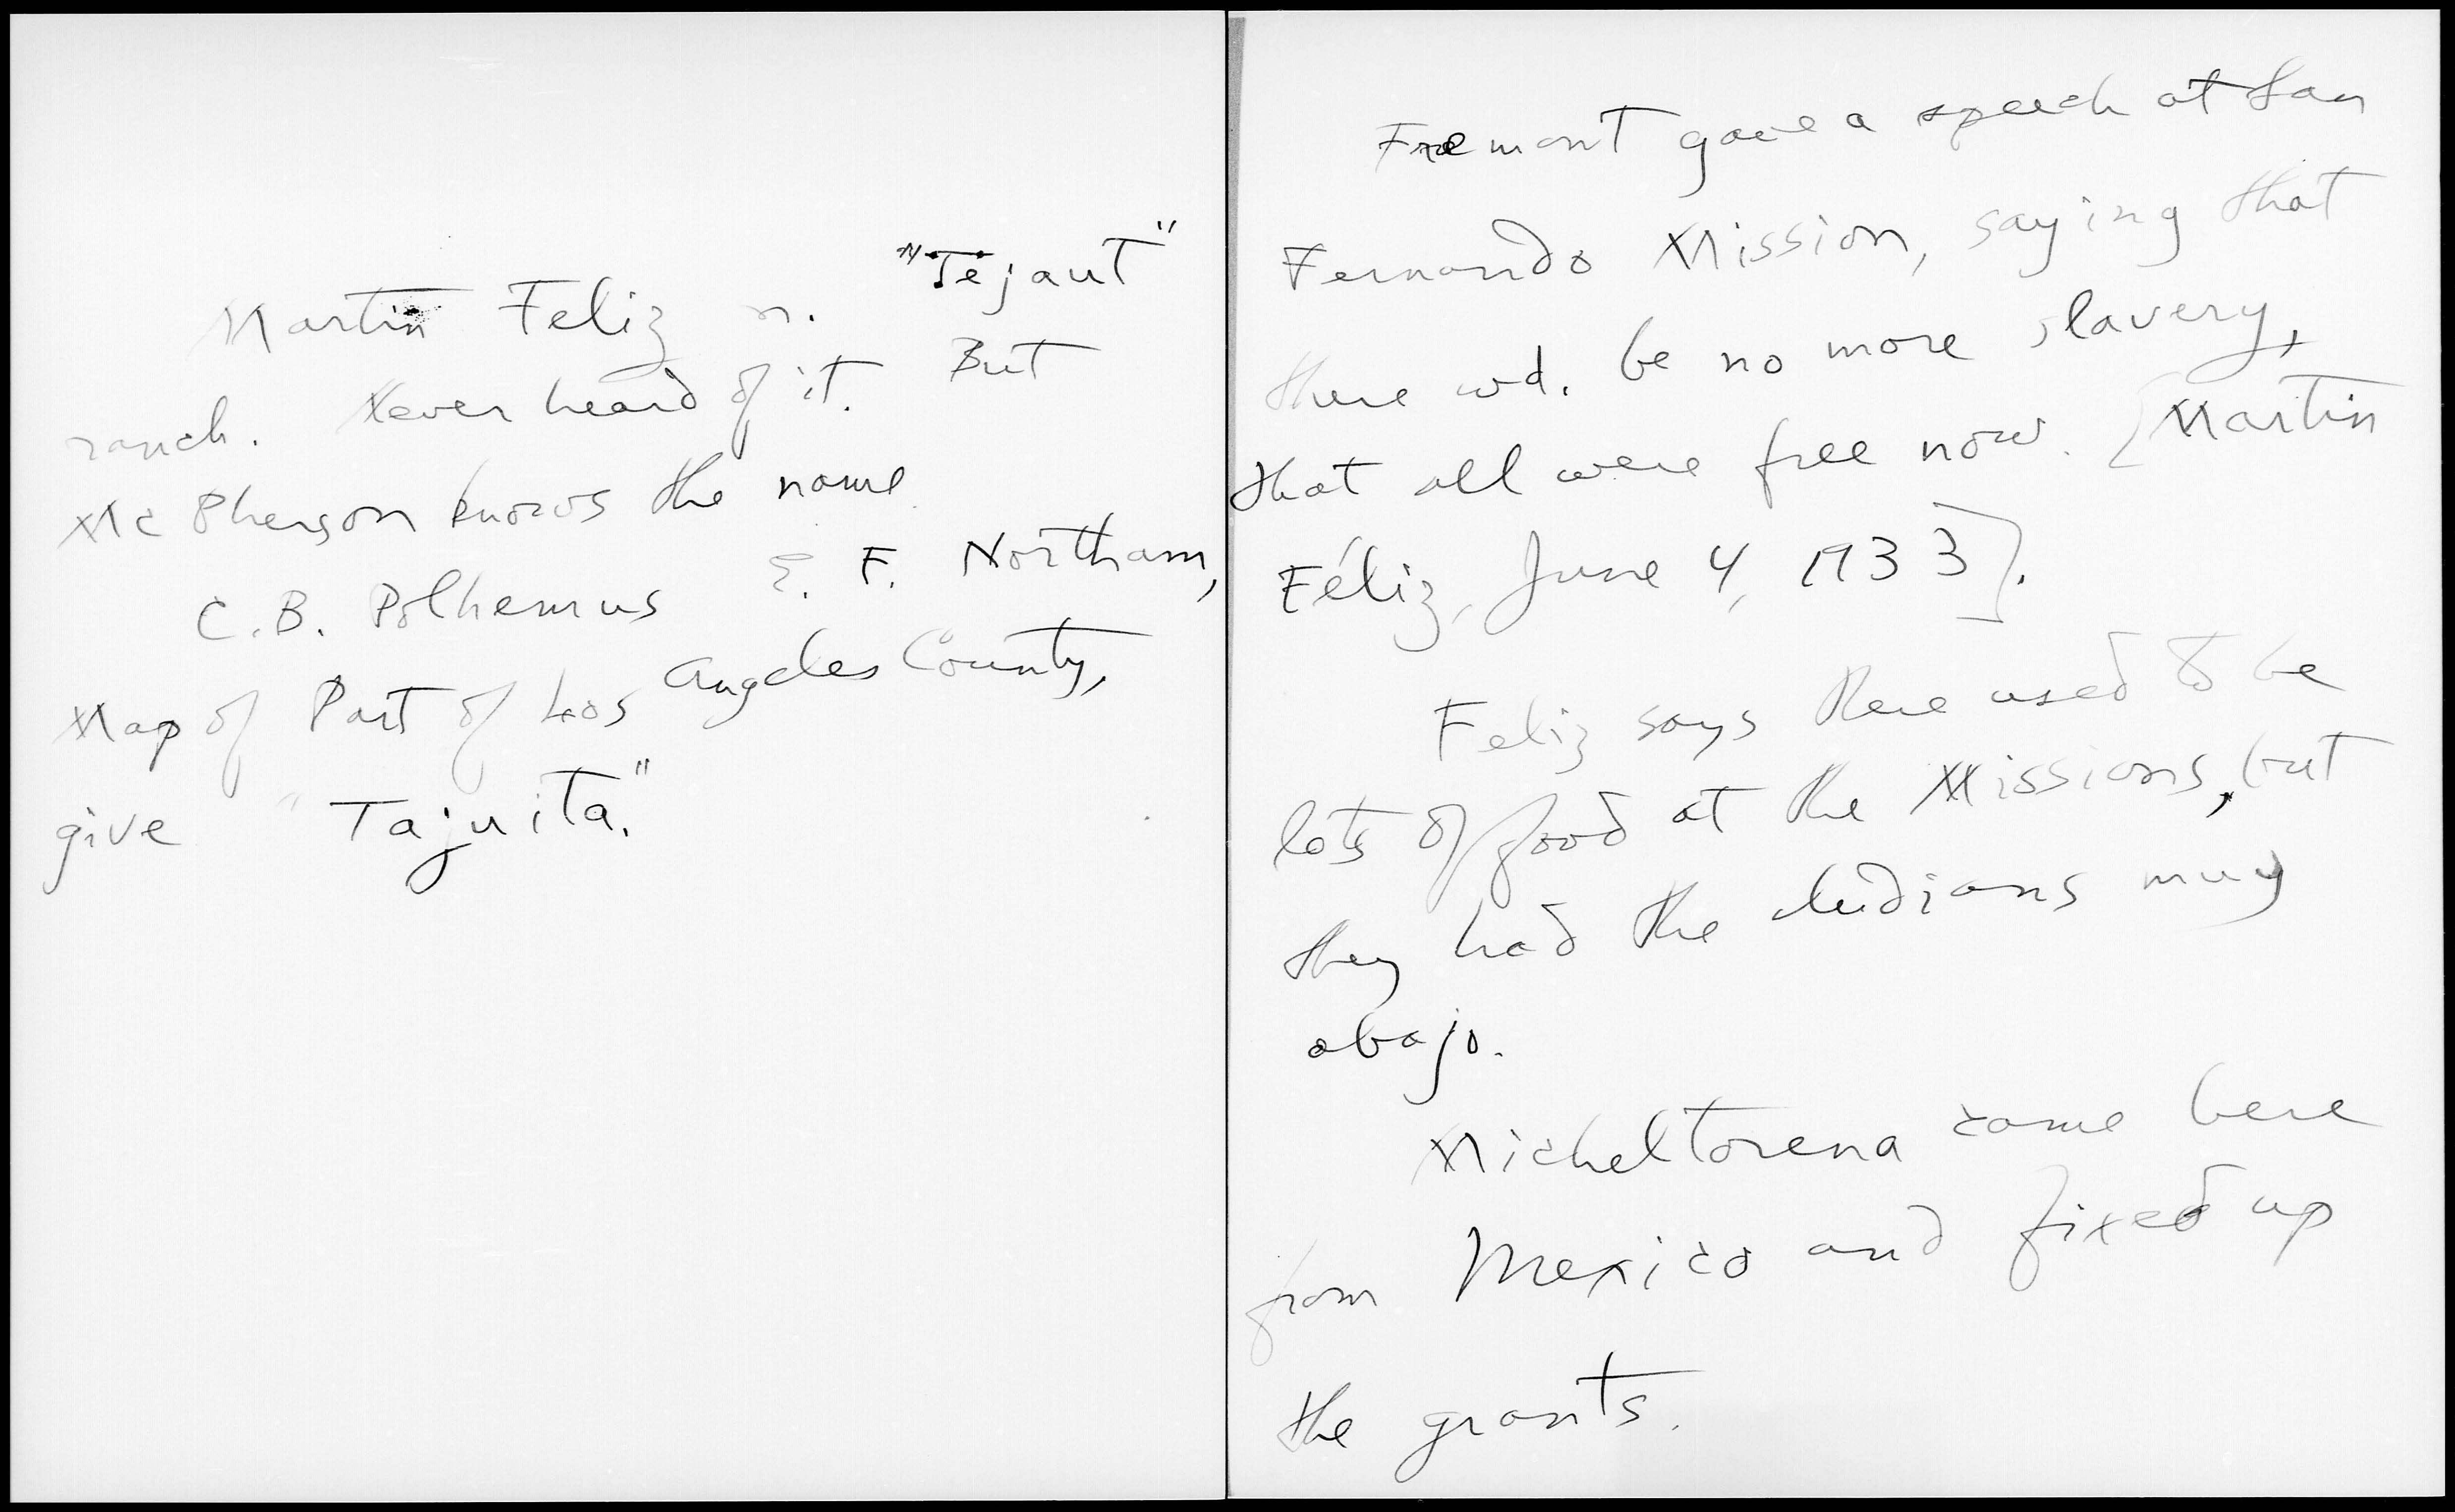 Martin Feliz n. "Tejaut"
ranch. Never heard of it. But
McPherson knows the name
C.B. Polhemus E. F. Northam,
Map of Part of Los Angeles County,
give "Tajuita."
Fremont gave a speech at San
Fernando Mission, saying that
there wd. be no more slavery,
that all were free now. [Martin
Féliz, June 4, 1933].
Feliz says there used to be
lots of food at the Missions, but
they had the Indians muy
abajo.
Micheltorena came here
from Mexico and fixed up
the grants.